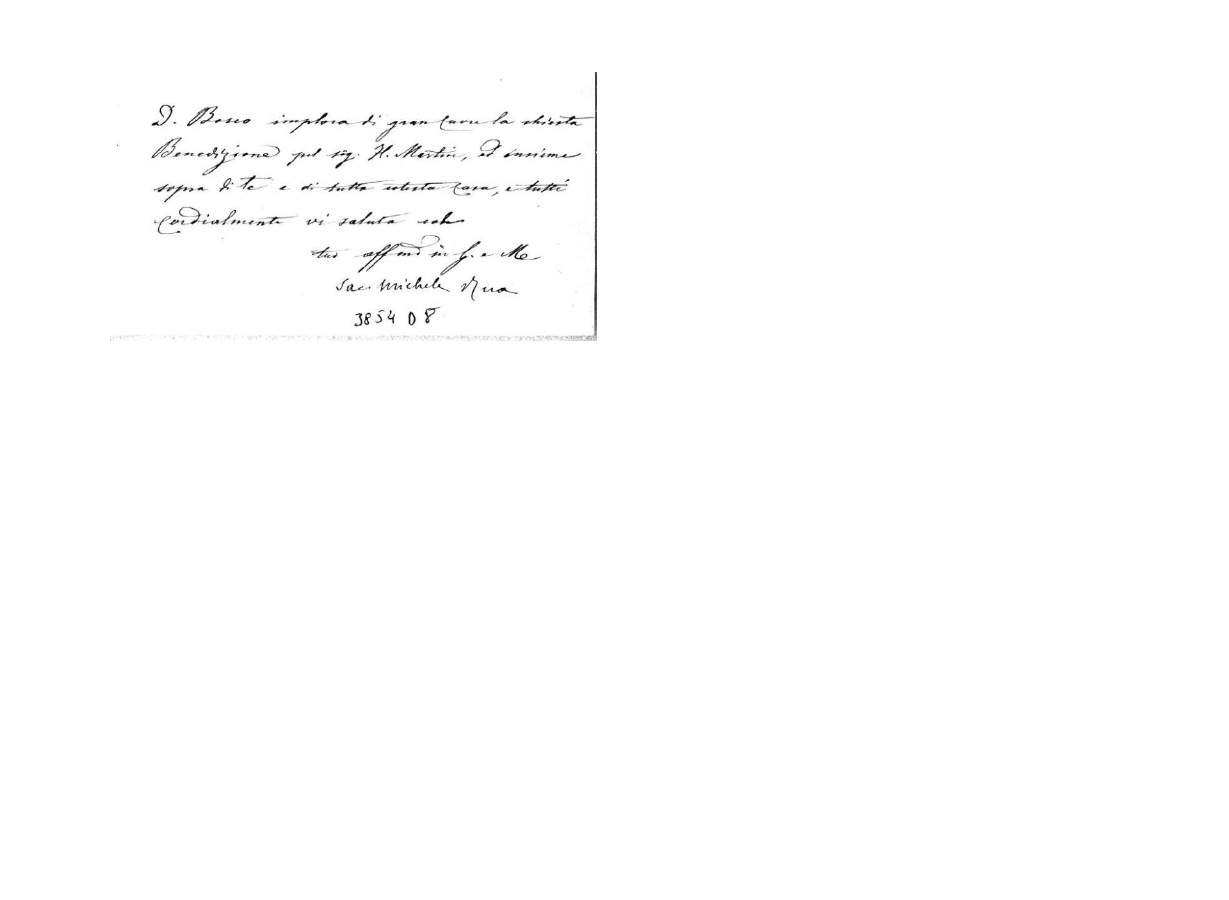 D. Bosco implora di gran cuore la chiesta
Benedizione pel sig. H. Martin, ed insieme
sopra di te e di tutta cotesta Casa, e tutti
cordialmente vi saluta col
tuo aff mo in G. e M.
Sac. Michele Rua
3854 D 8